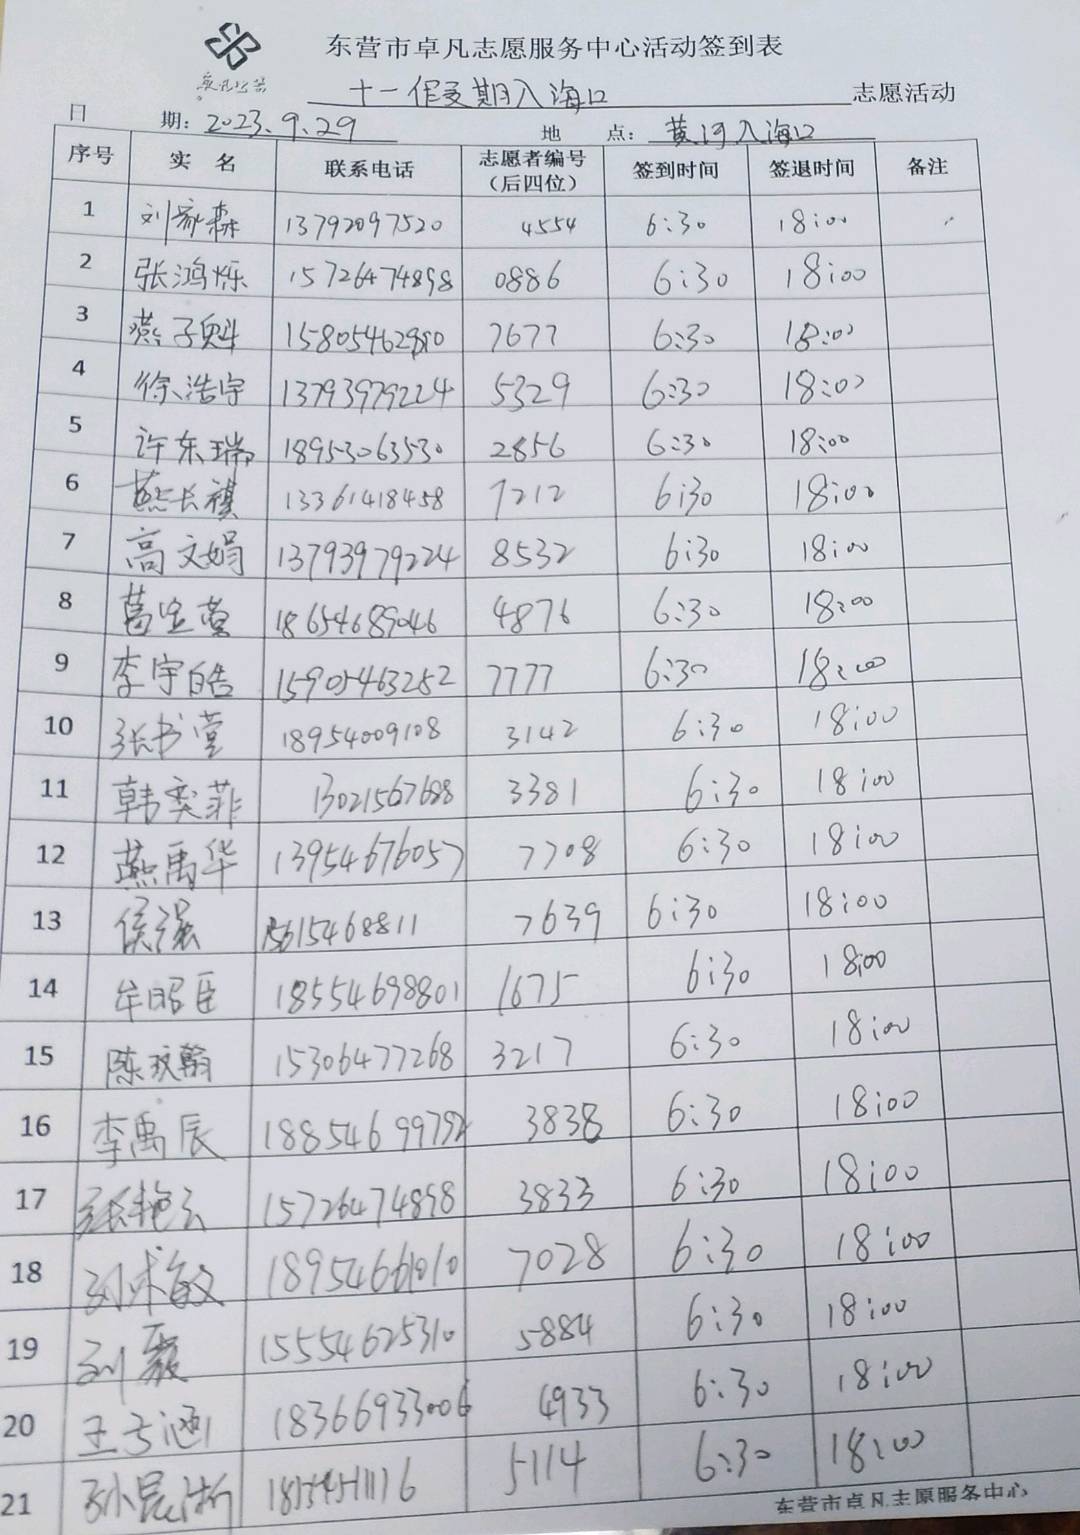 东营市卓凡志愿服务中心活动签到表
卓凡公益
十一假受期入海口 志愿活动
日 期：2023.9.29 地 点：黄河入海口
序号 实 名 联系电话 志愿者编号（后四位） 签到时间 签退时间 备注
1 刘家森 13792097520 4554 6:30 18:00
2 张鸿烁 15726474898 0886 6:30 18:00
3 燕子魁 7677 6:30 18:00
4 徐浩宇 13793979224 5329 6:30 18:00
5 许东瑞 18953063530 2856 6:30 18:00
6 燕长祺 13361418458 7212 6:30 18:00
7 高文娟 13793979224 8532 6:30 18:00
8 葛宝莹 18654689046 4876 6:30 18:00
9 李宇皓 15905463252 7777 6:30 18:00
10 张书莹 18954009108 3142 6:30 18:00
11 韩奕菲 13021567688 3381 6:30 18:00
12 燕禹华 13954676057 7708 6:30 18:00
13 侯强 15615468811 7639 6:30 18:00
14 牟昭臣 18554698801 1675 6:30 18:00
15 陈玟翰 15306477268 3217 6:30 18:00
16 李禹辰 18854699792 3838 6:30 18:00
17 张艳云 15726474898 3833 6:30 18:00
18 刘术敏 18954661010 7028 6:30 18:00
19 刘毅 15554625310 5884 6:30 18:00
20 王子涵 18366933006 4933 6:30 18:00
21 孙昆浙 5114 6:30 18:00
东营市卓凡志愿服务中心